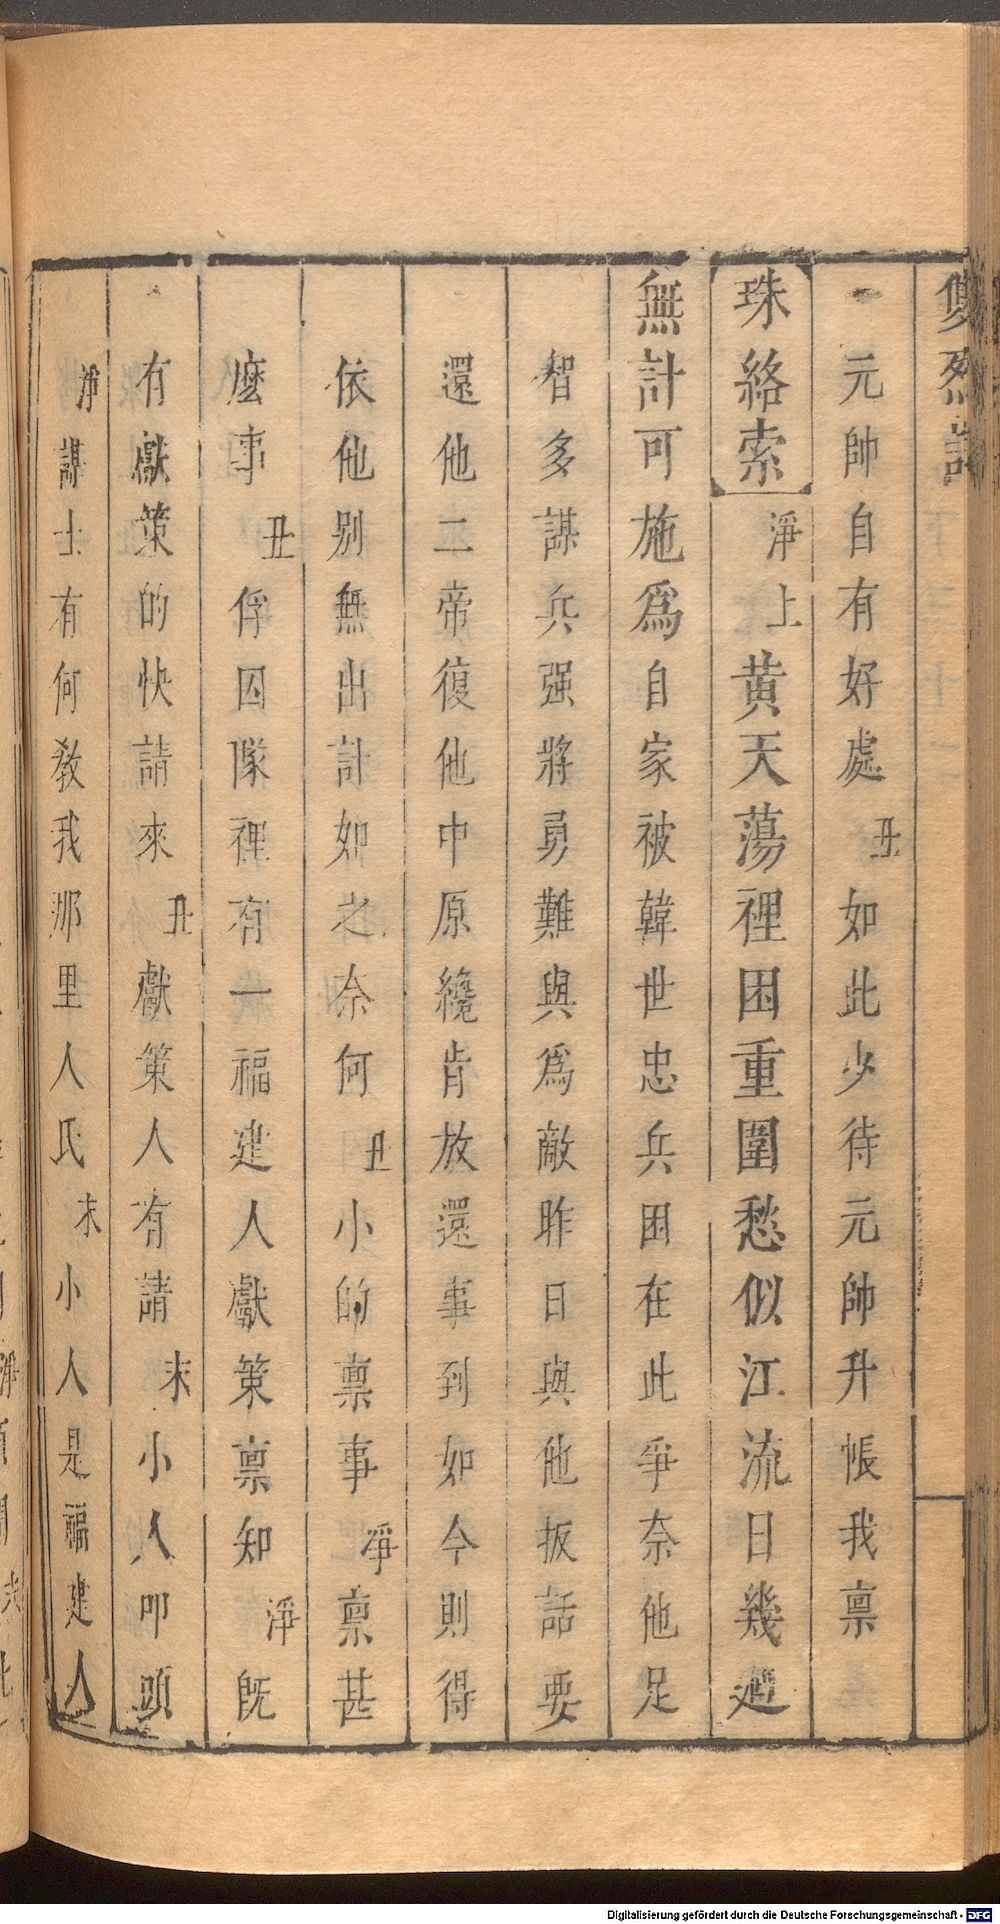 雙烈記
元帥自有好處丑如此少待元帥升帳我禀
珠絡索淨上黄天蕩裡困重圍愁似江流日幾廻
無計可施爲自家被韓世忠兵困在此爭奈他足
智多謀兵强將勇難與爲敵昨日與他扳話要
還他二帝復他中原纔肯放還事到如今則得
依他别無出計如之奈何丑小的禀事淨禀甚
麽事丑俘囚隊裡有一福建人獻策禀知淨旣
有獻策的快請來丑獻策人有請末小人叩頭
淨謀士有何敎我那里人氏末小人是福建人
Digitalisierung gefördert durch die Deutsche Forschungsgemeinschaft - DFG